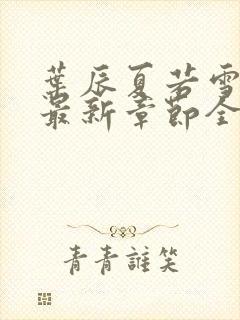 葉辰夏若雪
最新章節全
青青誰笑